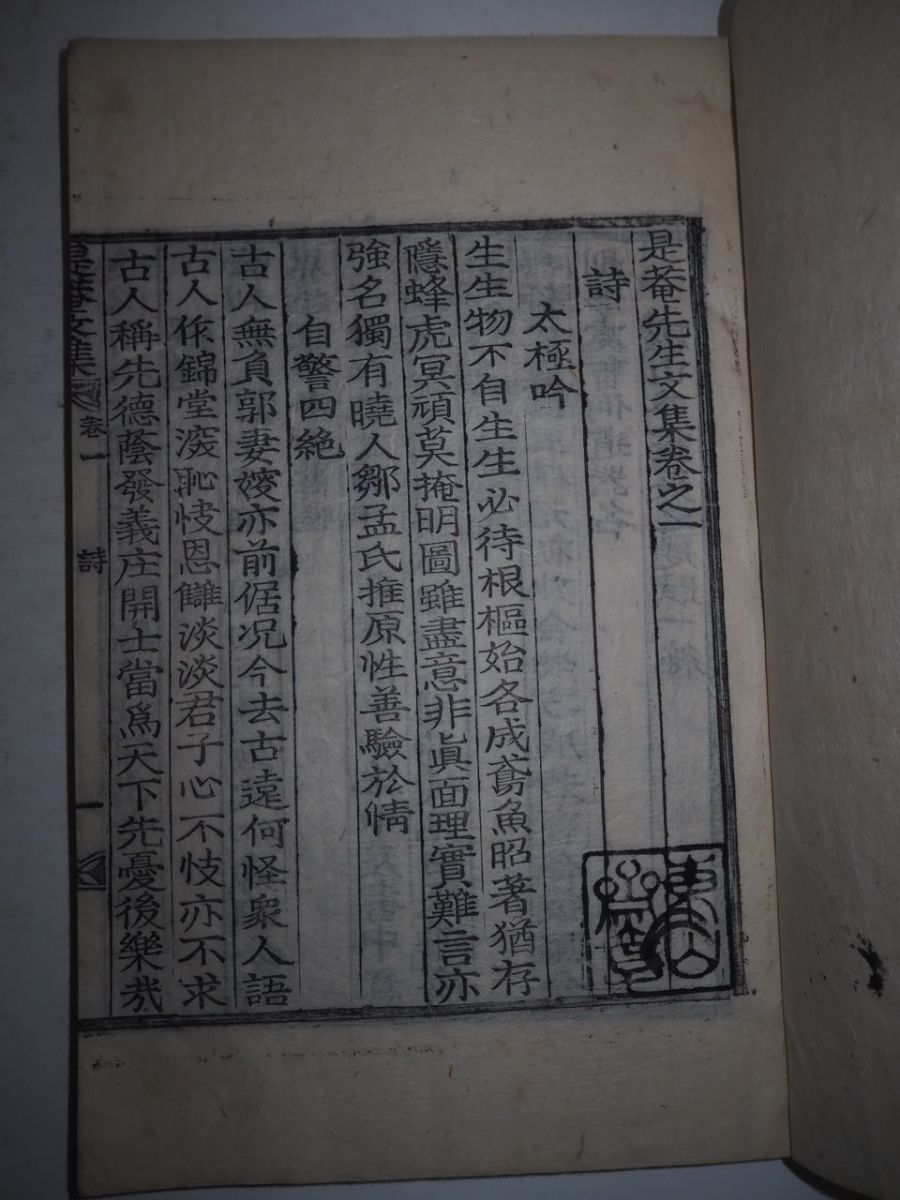 是菴先生文集卷之一
詩
太極吟
生生物不自生生必待根樞始各成鳶魚昭著猶存
隱蜂虎冥頑莫掩明圖雖盡意非眞面理實難言亦
強名獨有曉人鄒孟氏推原性善驗於情
自警四絶
古人無負郭妻嫂亦前倨况今去古遠何怪衆人語
古人作錦堂深恥快恩讎淡淡君子心不忮亦不求
古人稱先德蔭發義庄開士當爲天下先憂後樂哉
是菴文集 卷一 詩 一